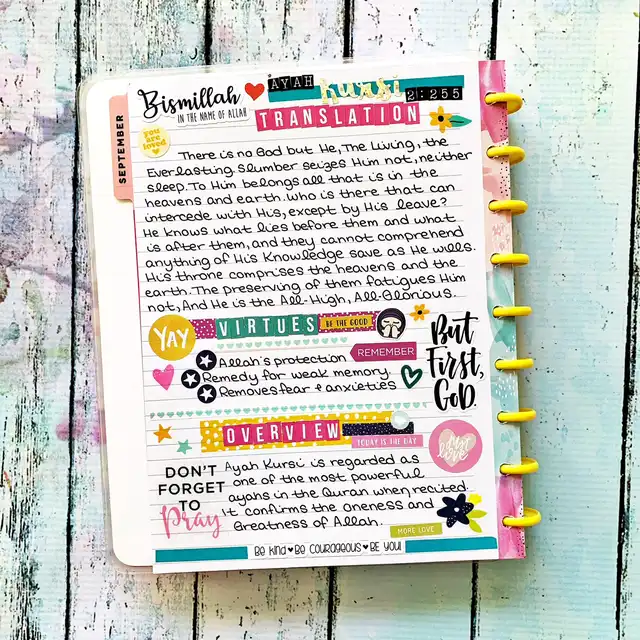 Bismillah
IN THE NAME OF ALLAH
AYAH
kursi
2:255
TRANSLATION
SEPTEMBER
you are loved
There is no God but He, The Living, the
Everlasting. Slumber seizes Him not, neither
sleep. To Him belongs all that is in the
heavens and earth. Who is there that can
intercede with His, except by His leave?
He knows what lies before them and what
is after them, and they cannot comprehend
anything of His Knowledge save as He wills.
His throne comprises the heavens and the
earth. The preserving of them fatigues Him
not, And He is the All-High, All-Glorious.
YAY
VIRTUES
BE THE GOOD
Allah's protection
REMEMBER
Remedy for weak memory.
Removes fear + anxieties
But
First,
GOD.
OVERVIEW
TODAY IS THE DAY
DON'T
FORGET
TO
Pray
Ayah Kursi is regarded as
one of the most powerful
ayahs in the Quran when recited.
It confirms the Oneness and
Greatness of Allah.
love
MORE LOVE
Be Kind ♥ Be Courageous ♥ Be You!